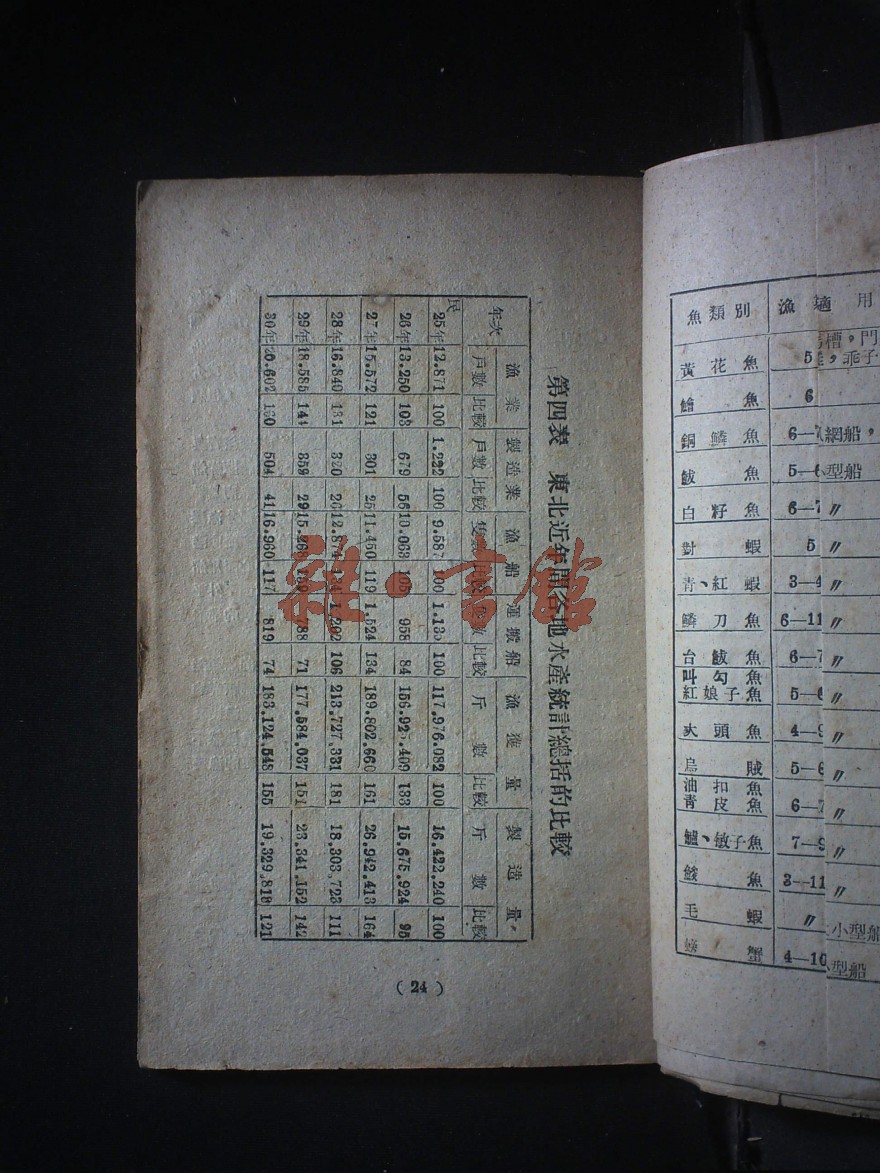 第四表 東北近年間各地水產統計總括的比較
年次 漁業 製造業 漁船 運搬船 漁獲量 製造量
戶數 比較 戶數 比較 隻數 比較 隻數 比較 斤數 比較 斤數 比較
民25年 12.871 100 1.222 100 9.587 100 1.135 100 117,976.082 100 16,422,240 100
26年 13.250 103 679 56 10.063 105 958 84 133 15,675,924 95
27年 15.572 121 301 25 11.450 119 1.524 134 189.802.660 161 26,942,413 164
28年 16.840 131 320 26 12.874 134 1,202 106 213,727,331 181 18,303,723 111
29年 18.585 144 359 29 788 71 177,584,037 151 23,341,152 142
30年 20.602 160 504 41 16.960 117 819 74 183,124,548 155 19,329,818 121
( 24 )
雜·書館
魚類別 漁 適用
槽，門
黃花魚 5 ，乖子
鱠魚 6
銅鱗魚 6—7 網船，
鮁魚 5—6 小型船
白籽魚 6—7 〃
對蝦 5 〃
青、紅蝦 3—4 〃
鱗刀魚 6—11 〃
台鮁魚 6—7 〃
叫勾魚
紅娘子魚 5—6 〃
大頭魚 4—9 〃
烏賊 5—6 〃
油扣魚
青皮魚 6—7 〃
鱸、敏子魚 7—9 〃
鮻魚 3—11 〃
毛蝦 〃 小型船
螃蟹 4—10 小型船